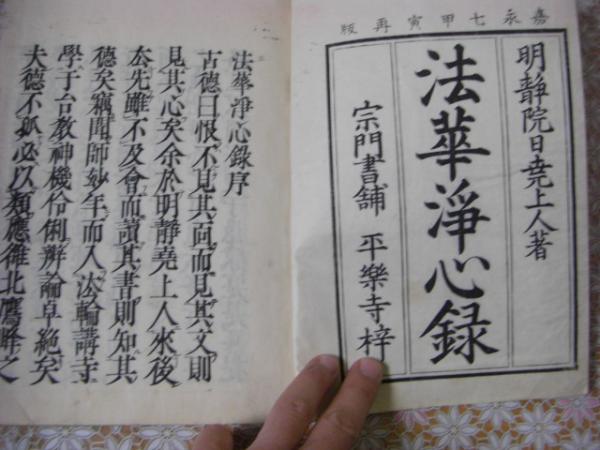 嘉永七甲寅再版
明静院日堯上人著
法華淨心録
宗門書舗 平樂寺梓
法華淨心録序
古德曰恨不見其面而見其文則
見其心矣余於明靜堯上人來後
厺先雖不及會而讀其書則知其
德矣竊聞師妙年而入法輪講寺
學于台教神機伶俐辨論卓絶矣
夫德不孤必以類應雒北鷹峰之